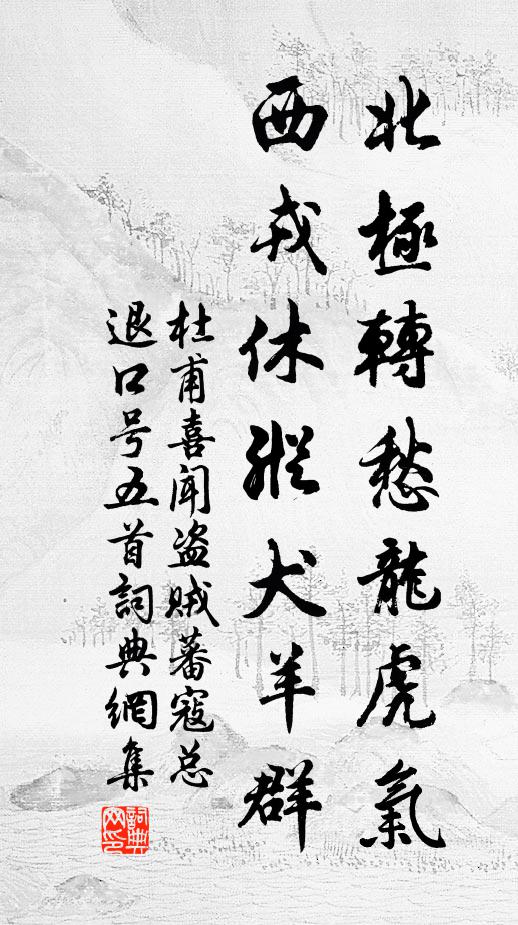 北極轉愁龍虎氣
西戎休縱犬羊群
杜甫喜闻盗贼蕃寇总
退口号五首詞典網集
詞典
网印